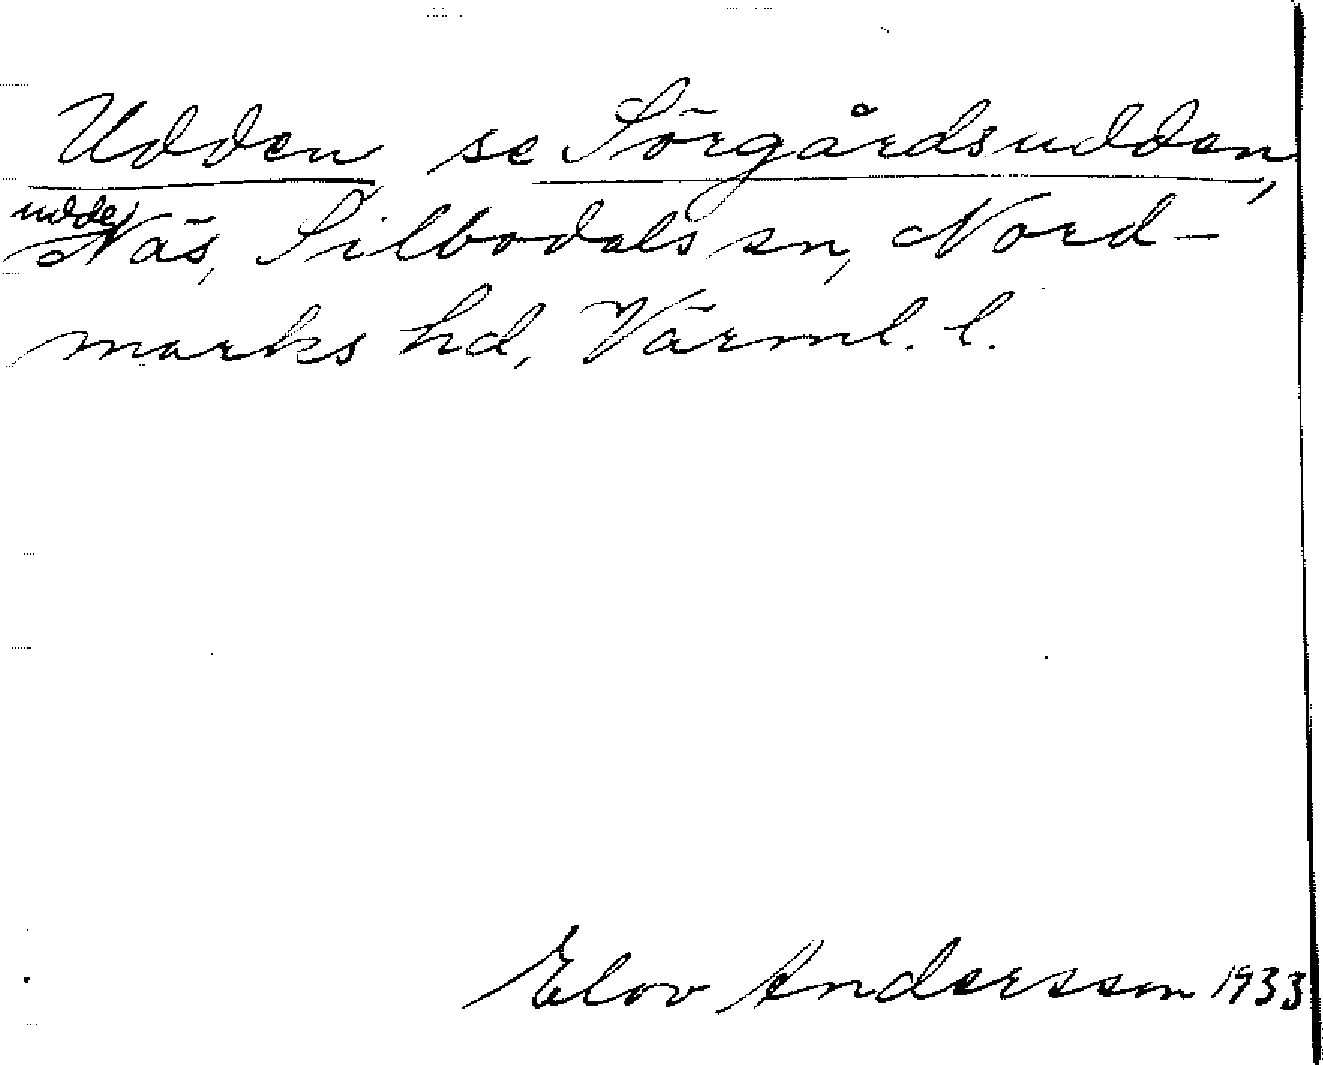 Udden se Sörgårdsudden,
udde
Näs, Silbodals sn, Nord-
marks hd, Värml. l.
Elov Andersson 1933